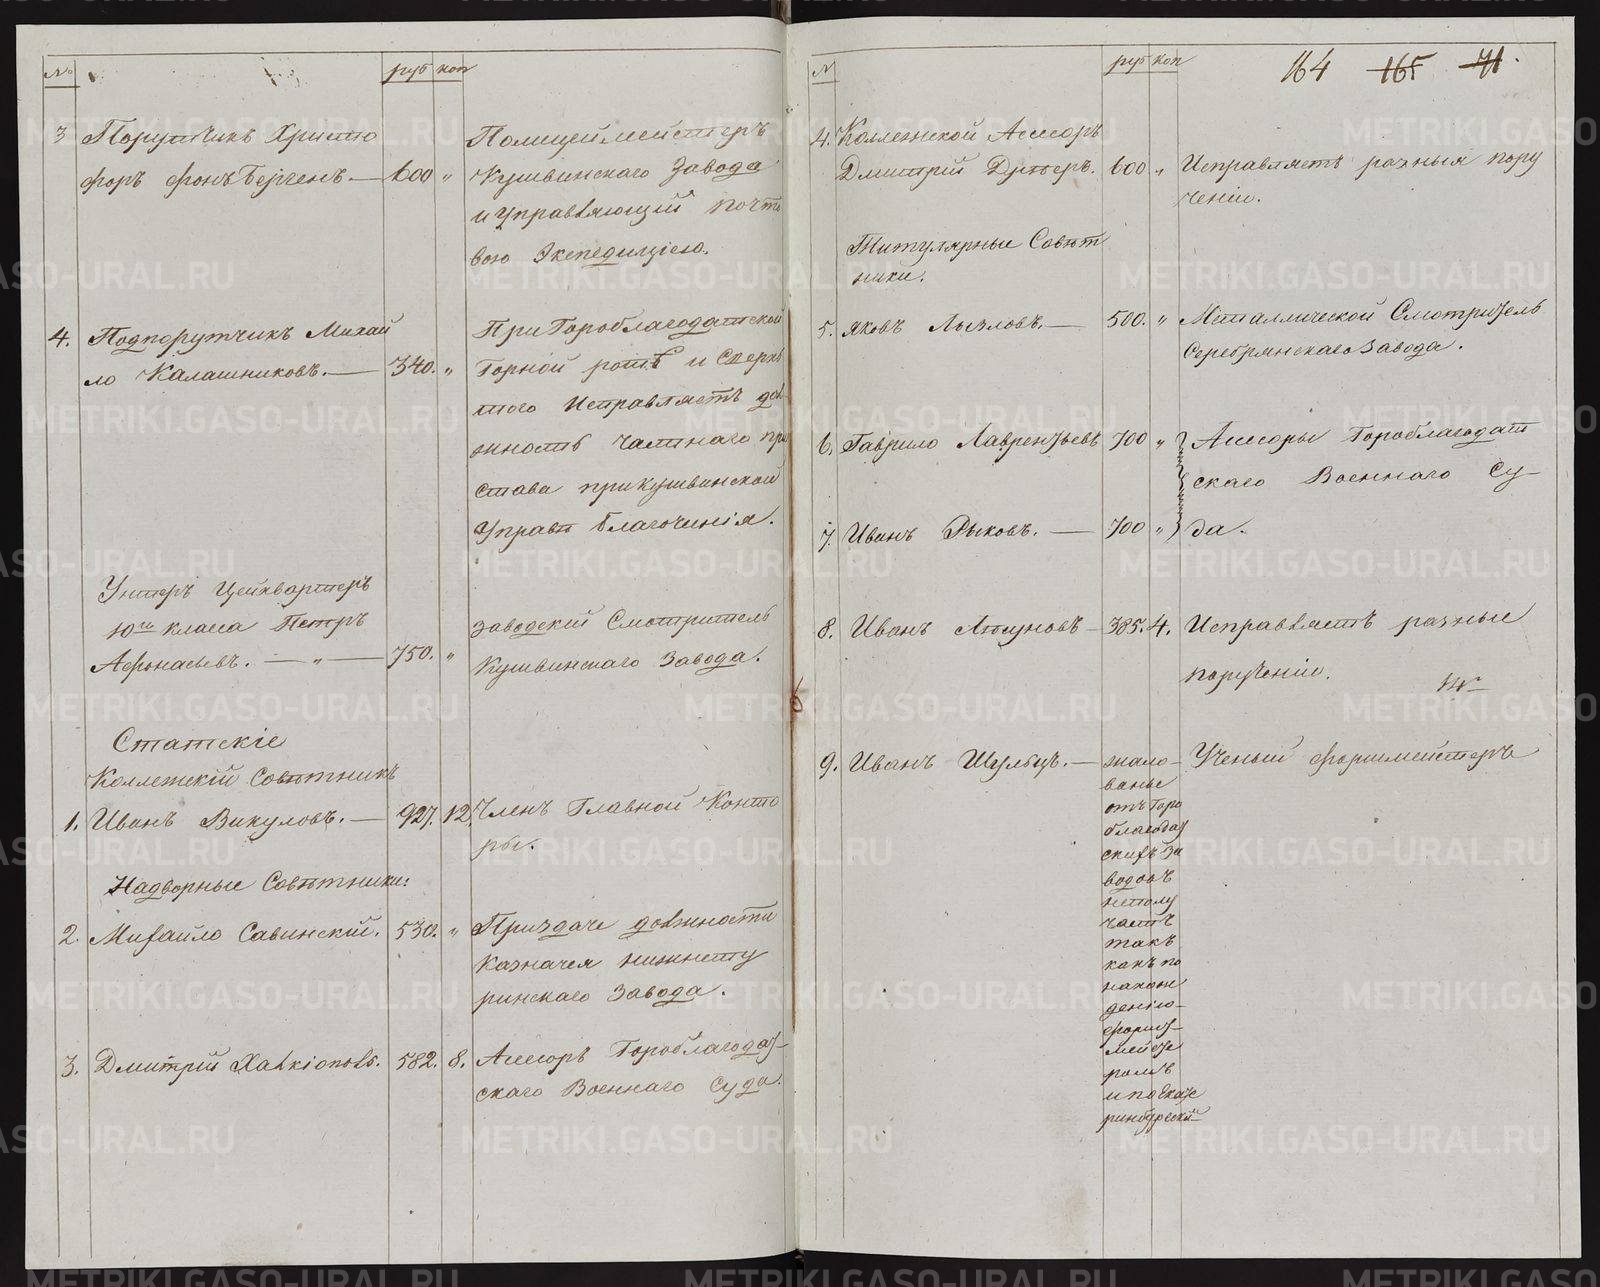 № руб коп
3 Порутчикъ Христо
форъ фонъ Бергенъ. — 600 „
Полицеймейстеръ
Кушвинскаго Завода
и управляющій почто
вою Экспедиціею.
4. Подпорутчикъ Михай
ло Калашниковъ. — 340. „
При Гороблагодатской
Горной ротѣ и Сверхъ
того Исправляетъ дол
жность Частнаго при
става при кушвинской
Управѣ благочинія.
Унтеръ Цейхвартеръ
10го класса Петръ
Афонасьевъ. — „ — 750. „
Заводскій Смотритель
Кушвинскаго Завода.
Статскіе
Коллежскій Совѣтникъ
1. Иванъ Викуловъ. — 927. 12.
Членъ Главной Конто
ры.
Надворные Совѣтники:
2. Михайло Савинскій. 530. „
При здаче должности
Казначея нижнету
ринскаго Завода.
3. Дмитрій Хавкіоновъ. 582. 8.
Ассесоръ Гороблагодат-
скаго Военнаго Суда.
№ руб коп
164 165 71.
4. Коллежской Асессоръ
Дмитрій 600 „
Исправляетъ разныя пору
ченіи.
Титулярные Совѣт
ники.
5. Яковъ Лызловъ. — 500. „
Металлической Смотритель
Серебрянскаго Завода.
6. Гаврило Лаврентьевъ 700 „
Ассесоры Гороблагодат
скаго Военнаго Су-
7. Иванъ Рыковъ. — 700 „
да.
8. Иванъ — 385. 4.
Исправляетъ разные
порученіи.
9. Иванъ Шульцъ. —
Ученый форшмейстеръ
жало-
ванье
отъ Горо
благодат
скихъ За
водовъ
неполу
чаетъ
такъ
какъ по
нахож
денію-
форшт-
мейсте
ромъ
и по Екате
ринбургской